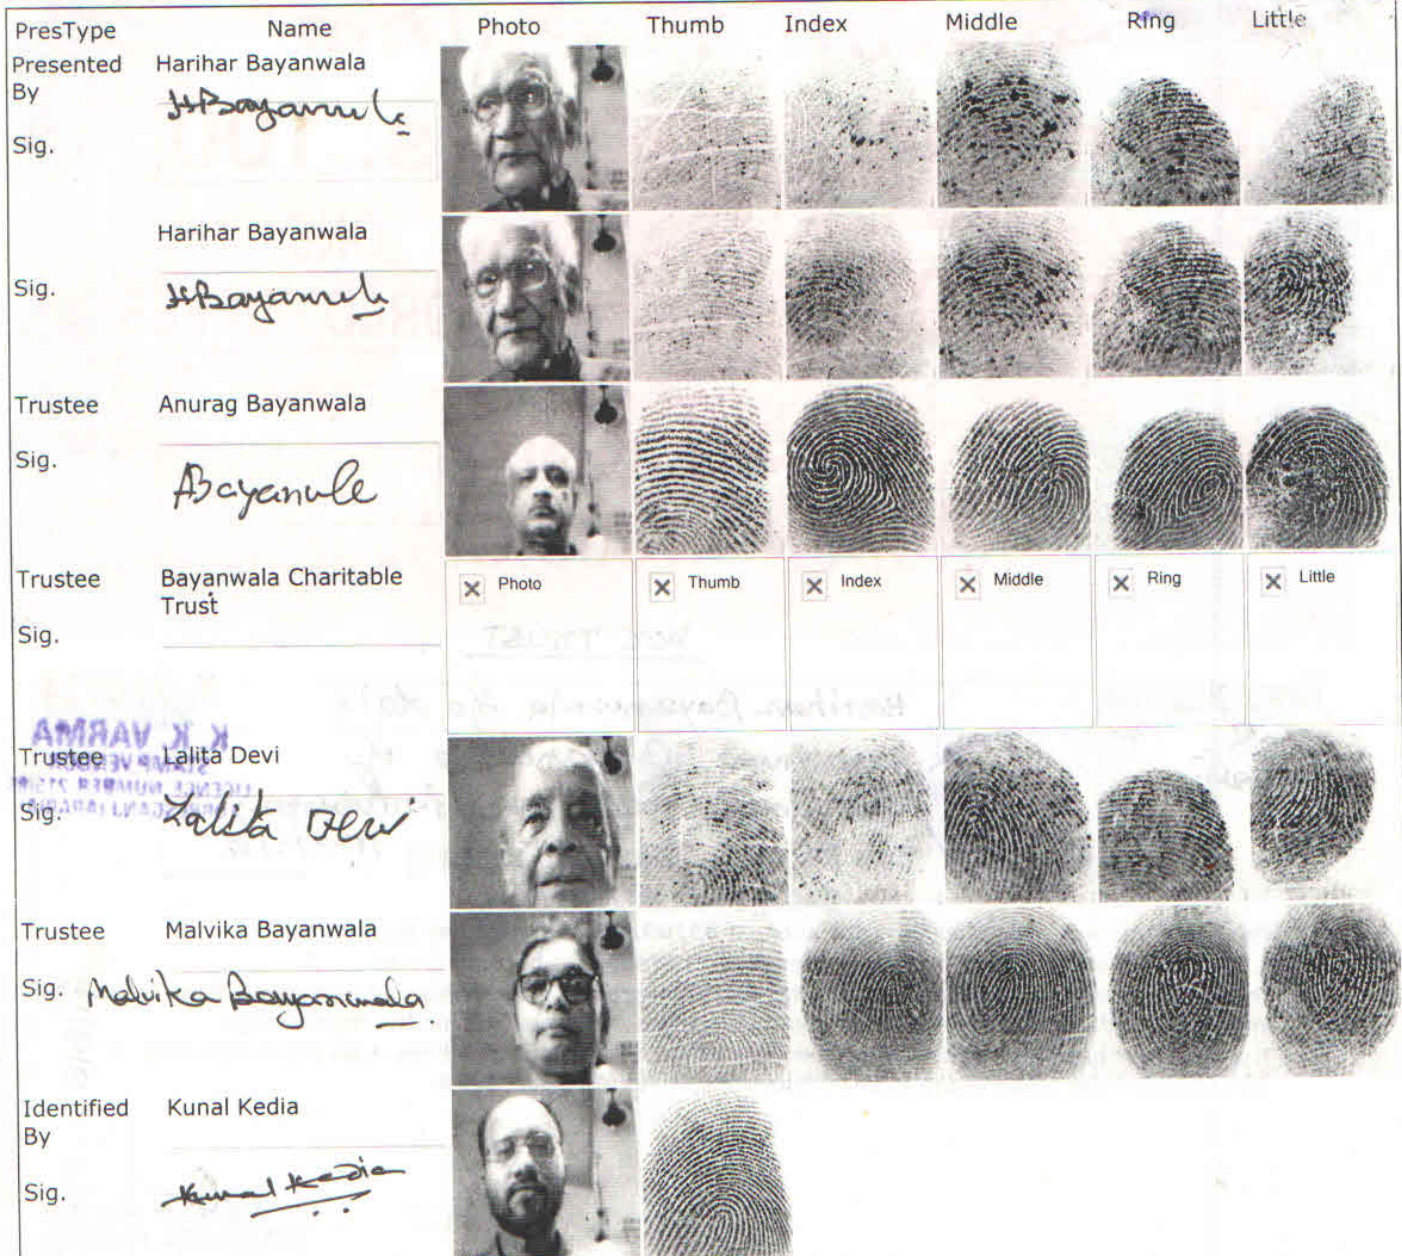 PresType Name Photo Thumb Index Middle Ring Little
Presented By Harihar Bayanwala
HBayanwala
Sig.
Harihar Bayanwala
Sig. HBayanwala
Trustee Anurag Bayanwala
Sig.
ABayanwala
Trustee Bayanwala Charitable Trust
Photo Thumb Index Middle Ring Little
Sig.
K. K. VARMA
STAMP VENDOR
LICENCE NUMBER
Trustee Lalita Devi
Sig. Lalita Devi
Trustee Malvika Bayanwala
Sig. Malvika Bayanwala
Identified By Kunal Kedia
Sig. Kunal Kedia